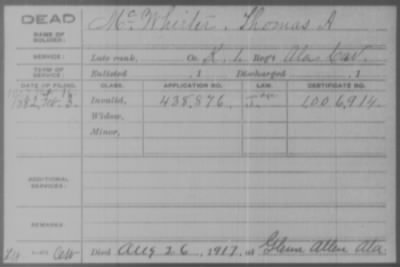 DEAD Mc Whirter, Thomas A
NAME OF
SOLDIER:
SERVICE: Late rank, Co. K, 1, Reg't Ala Cav.
TERM OF
SERVICE: Enlisted , 1 Discharged , 1
DATE OF FILING. CLASS. APPLICATION NO. LAW. CERTIFICATE NO.
1882, Feb. 3. Invalid, 438,876 1006,914
Widow,
Minor,
ADDITIONAL
SERVICES:
REMARKS:
Died Aug 26, 1917, at Glenn Allen Ala